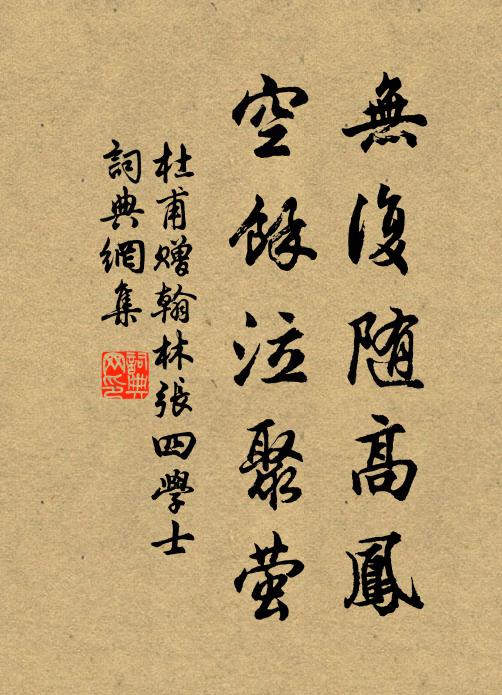 無復随高鳳
空餘泣聚萤
杜甫赠翰林張四學士
詞典網集
詞典网印